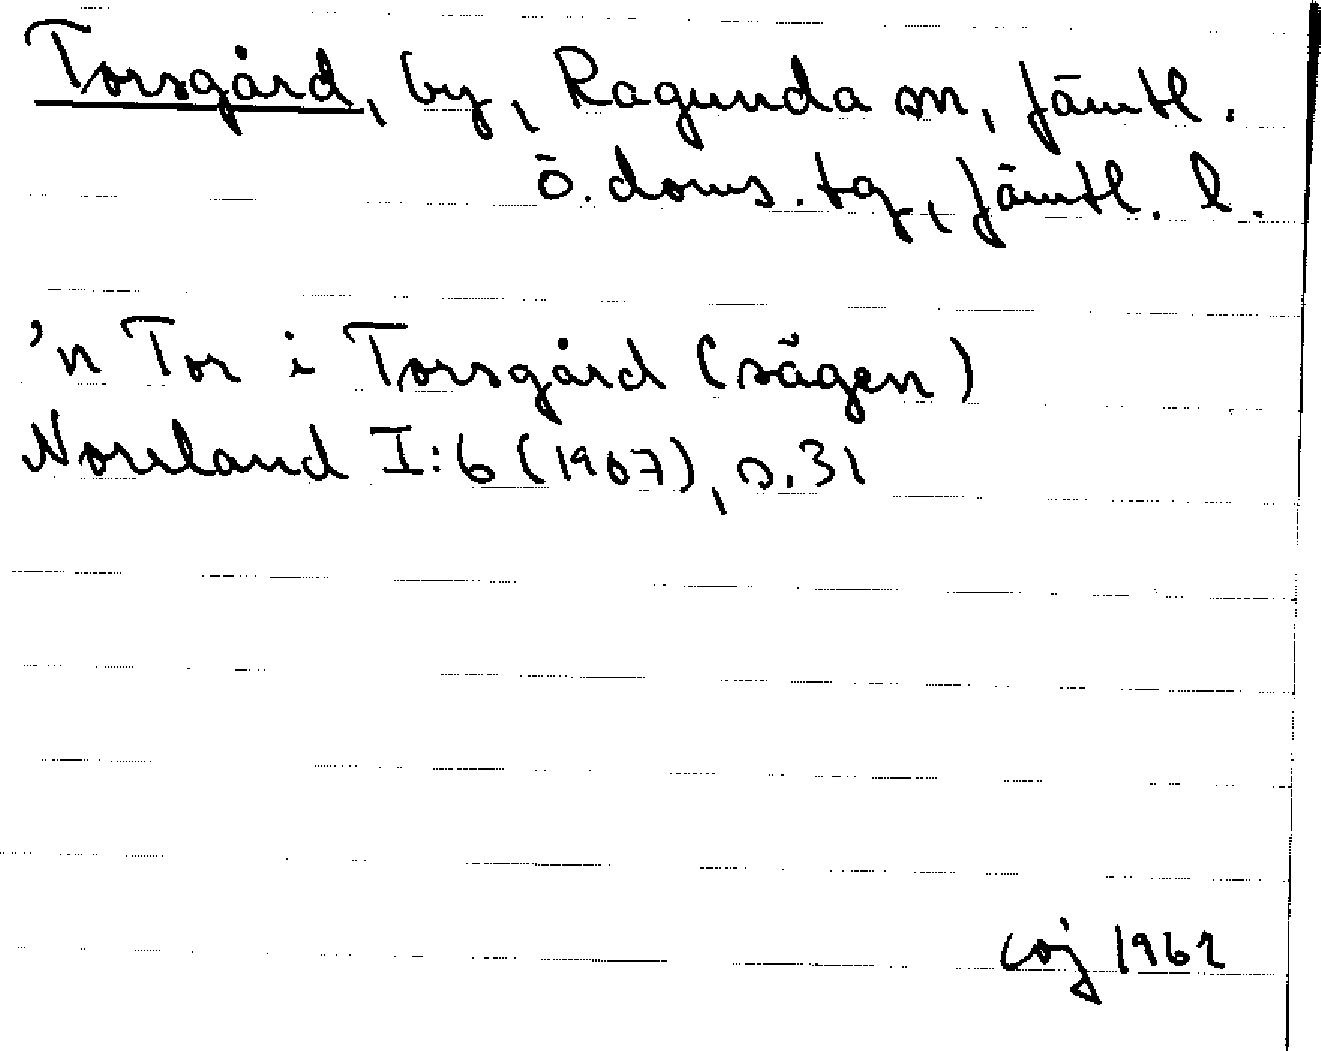 Torsgård, by, Ragunda sn, Jämtl.
ö. doms. tg, Jämtl. l.
'n Tor i Torsgård (sägen)
Norrland I:6 (1907), s. 31
coj 1962